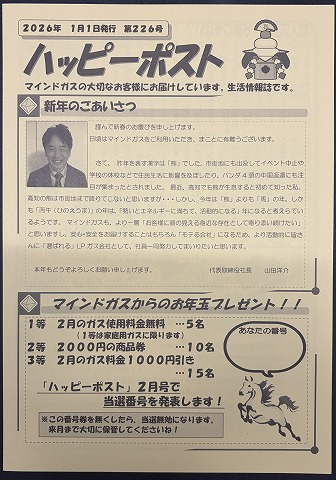 2026年 1月1日発行 第226号
ハッピーポスト
マインドガスの大切なお客様にお届けしています。生活情報誌です。
新年のごあいさつ
謹んで新春のお慶びを申し上げます。
日頃はマインドガスをご利用いただき、まことに有難うございます。
さて、昨年を表す漢字は「熊」でした。市街地にも出没してイベント中止や
学校の休校などで住民生活に影響を及ぼしたり、パンダ4頭の中国返還にも注
目が集まったとされました。最近、高知でも熊が生息すると初めて知った私。
高知の熊は市街地まで降りてこないと思いますが・・・しかし、今年は「熊」よりも「馬」の年。しか
も「丙午（ひのえうま）の年は、「勢いとエネルギーに満ちて、活動的になる」年になると考えている
ようです。マインドガスも、より一層「お客様に顔の見える身近な存在として寄り添い続けたい」
と思いますし、安心・安全をお届けすることはもちろん「モテる会社」になるため、より活動的に皆さ
んに「選ばれる」LPガス会社として、社員一同努力してまいりたいと思います。
本年もどうぞよろしくお願い申し上げます。 代表取締役社長 山田洋介
マインドガスからのお年玉プレゼント！！
1等 2月のガス使用料金無料 …5名
（1等は家庭用ガスに限ります）
2等 2000円の商品券 …10名
3等 2月のガス料金1000円引き
…15名
あなたの番号
「ハッピーポスト」2月号で
当選番号を発表します！
※この番号券を無くしたら、当選無効になります。
来月まで大切に保管してくださいね！